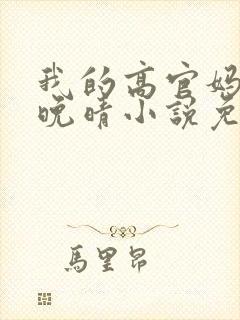 我的高官妈
晚晴小说免
馬里昂